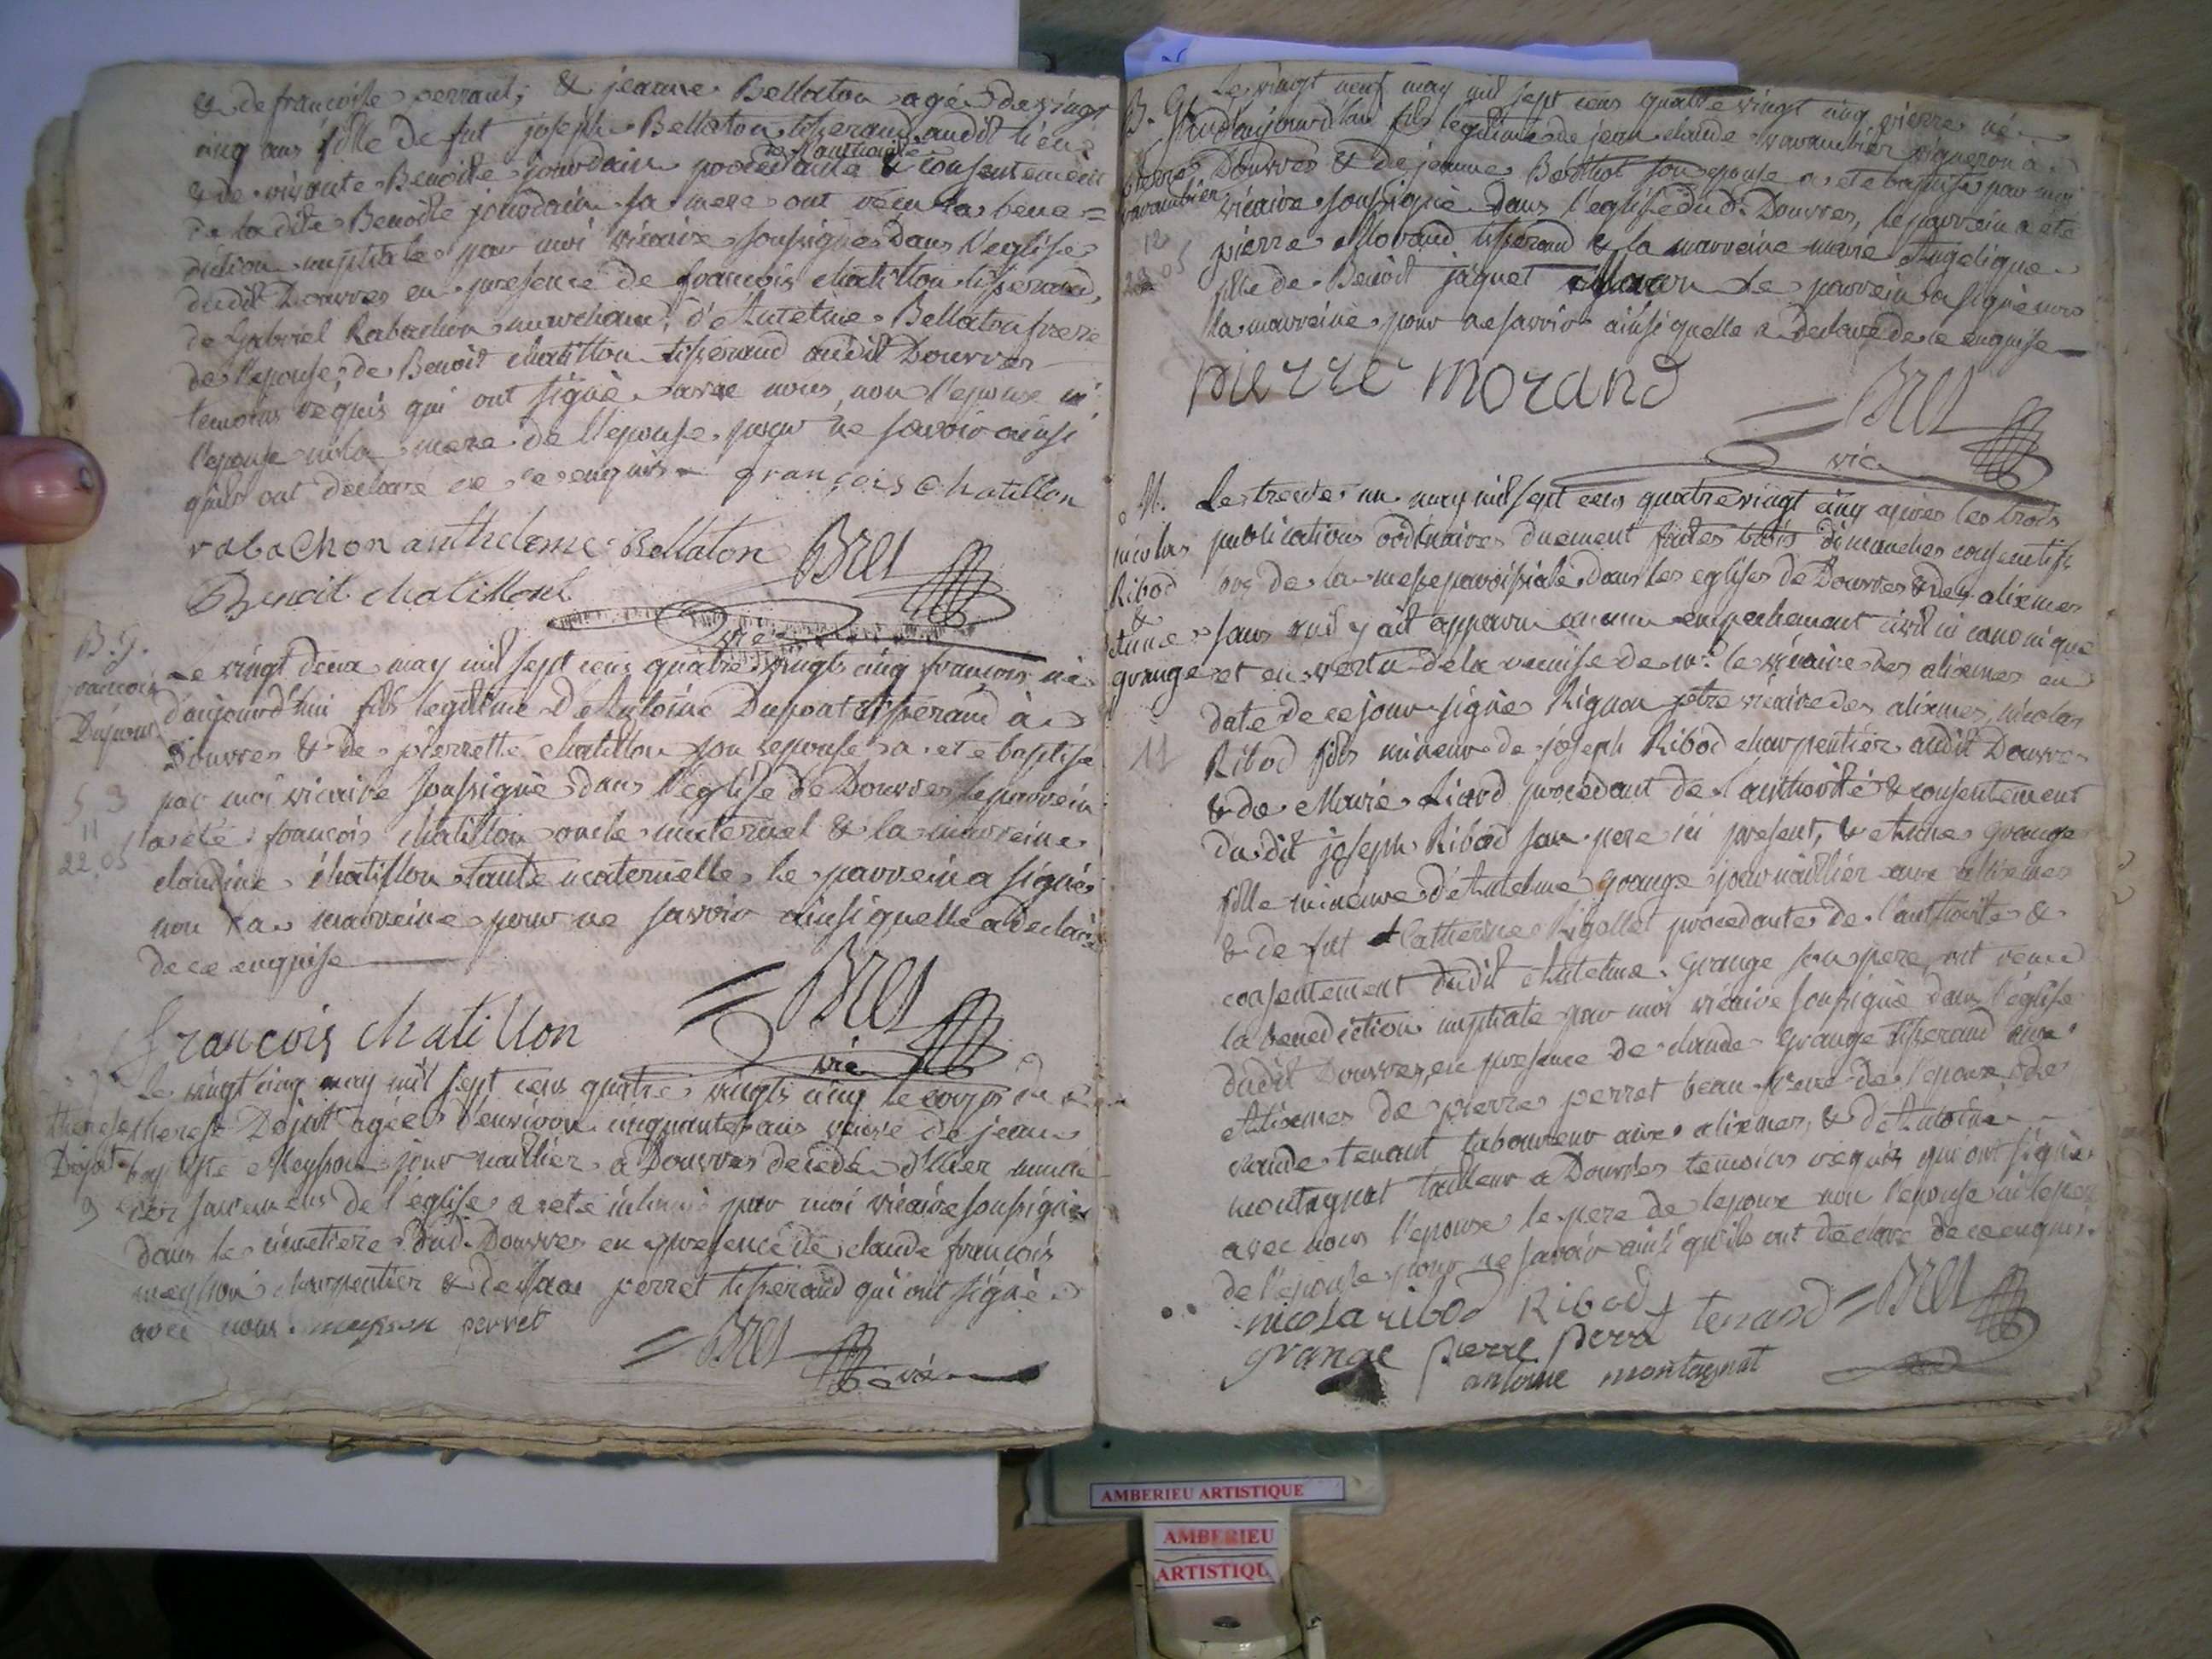 & de francoise perrant, & jeanne Bellaton agée de vingt
cinq ans fille de fut joseph Bellaton tisserand audit lieu
& de vivante Benoite jourdain procedante de l'authorité & consentement
de la dite Benoite jourdain sa mere ont recu la bene=
diction nuptiale par moi vicaire soussigné dans l'eglise
dudit Douvres en presence de francois chatillon tisserand,
de Gabriel Rabachon marchand, d'Antelme Bellaton frere
de l'epouse, de Benoit chatillon tisserand audit Douvres
temoins requis qui ont signé avec nous, non l'epoux ni
l'epouse ni la mere de l'epouse pour ne savoir ainsi
qu'ils ont declaré de ce enquis françois chatillon
rabachon antheleme Bellaton Bret
Benoit chatillont
vic
B. G.
francois
Dupont
5 3
11
22.05
Le vingt deux may mil sept cens quatre vingt cinq francois né
d'aujourd'hui fils legitime d'Antoine Dupont tisserand à
Douvres & de pierrette chatillon son epouse a eté baptisé
par moi vicaire soussigné dans l'eglise de Douvres le parrein
a eté francois chatillon oncle maternel & la marreine
claudine chatillon tante maternelle le parrein a signé
non la marreine pour ne savoir ainsi quelle a declaré
de ce enquise
francois chatillon
= Bret
vic
therese
Dejot
9
Le vingt cinq may mil sept cens quatre vingts cinq le corps de
therese Dejot agée d'environ cinquante ans veuve de jean
baptiste Meysson journaillier à Douvres decedée d'hier munie
des sacremens de l'église a eté inhumé par moi vicaire soussigné
dans le cimetiere dud. Douvres en presence de claude francois
meysson charpentier & de perret tisserand qui ont signé
avec nous. meysson perret
= Bret
vic
B. G.
pierre
varambier
12
29.05
Le vingt neuf may mil sept cens quatre vingt cinq pierre né
aujourd'hui fils legitime de jean claude varambier vigneron à
Douvres & de jeanne Berthot son epouse a eté baptisé par moi
vicaire soussigné dans l'eglise dud. Douvres, le parrein a eté
pierre Morand tisserand & la marreine marie Angelique
fille de Benoit jaquet le parrein a signé non
la marreine pour ne savoir ainsi quelle a declaré de ce enquise
pierre morand
= Bret
vic
M.
nicolas
Ribod
&
Anne
grange
11
Le trente un may mil sept cens quatre vingt cinq apres les trois
publications ordinaires duement faites trois dimanches consecutifs
lors de la messe paroissiale dans les eglises de Douvres & des alixmes
sans qu'il y ait apparu aucun empechement civil ni canonique
et en vertu de la remise de mr le vicaire des alixmes en
date de ce jour signé Rignon ptre vicaire des alixmes, nicolas
Ribod fils mineur de joseph Ribod charpentier audit Douvres
& de Marie Licard procedant de l'authorité & consentement
du dit joseph Ribod son pere ici present, & Anne Grange
fille mineure d'Antelme grange journaillier aux allixmes
& de fut Catherine Rigollet procedante de l'authorité &
consentement dudit Antelme Grange son pere, ont recu
la benediction nuptiale par moi vicaire soussigné dans l'église
dudit Douvres, en presence de claude Grange tisserand aux
Alixmes de pierre perret beau frere de l'epoux, de
claude tenant laboureur aux alixmes, & d'Antoine
montagnat tailleur a Douvres temoins requis qui ont signé
avec nous l'epoux le pere de lepoux non l'epouse ni le pere
de l'epouse pour ne savoir ainsi qu'ils ont declaré de ce enquis.
nicola ribod Ribod tenand = Bret
grange pierre pera
antoine montagnat
AMBERIEU ARTISTIQUE
AMBERIEU
ARTISTIQU